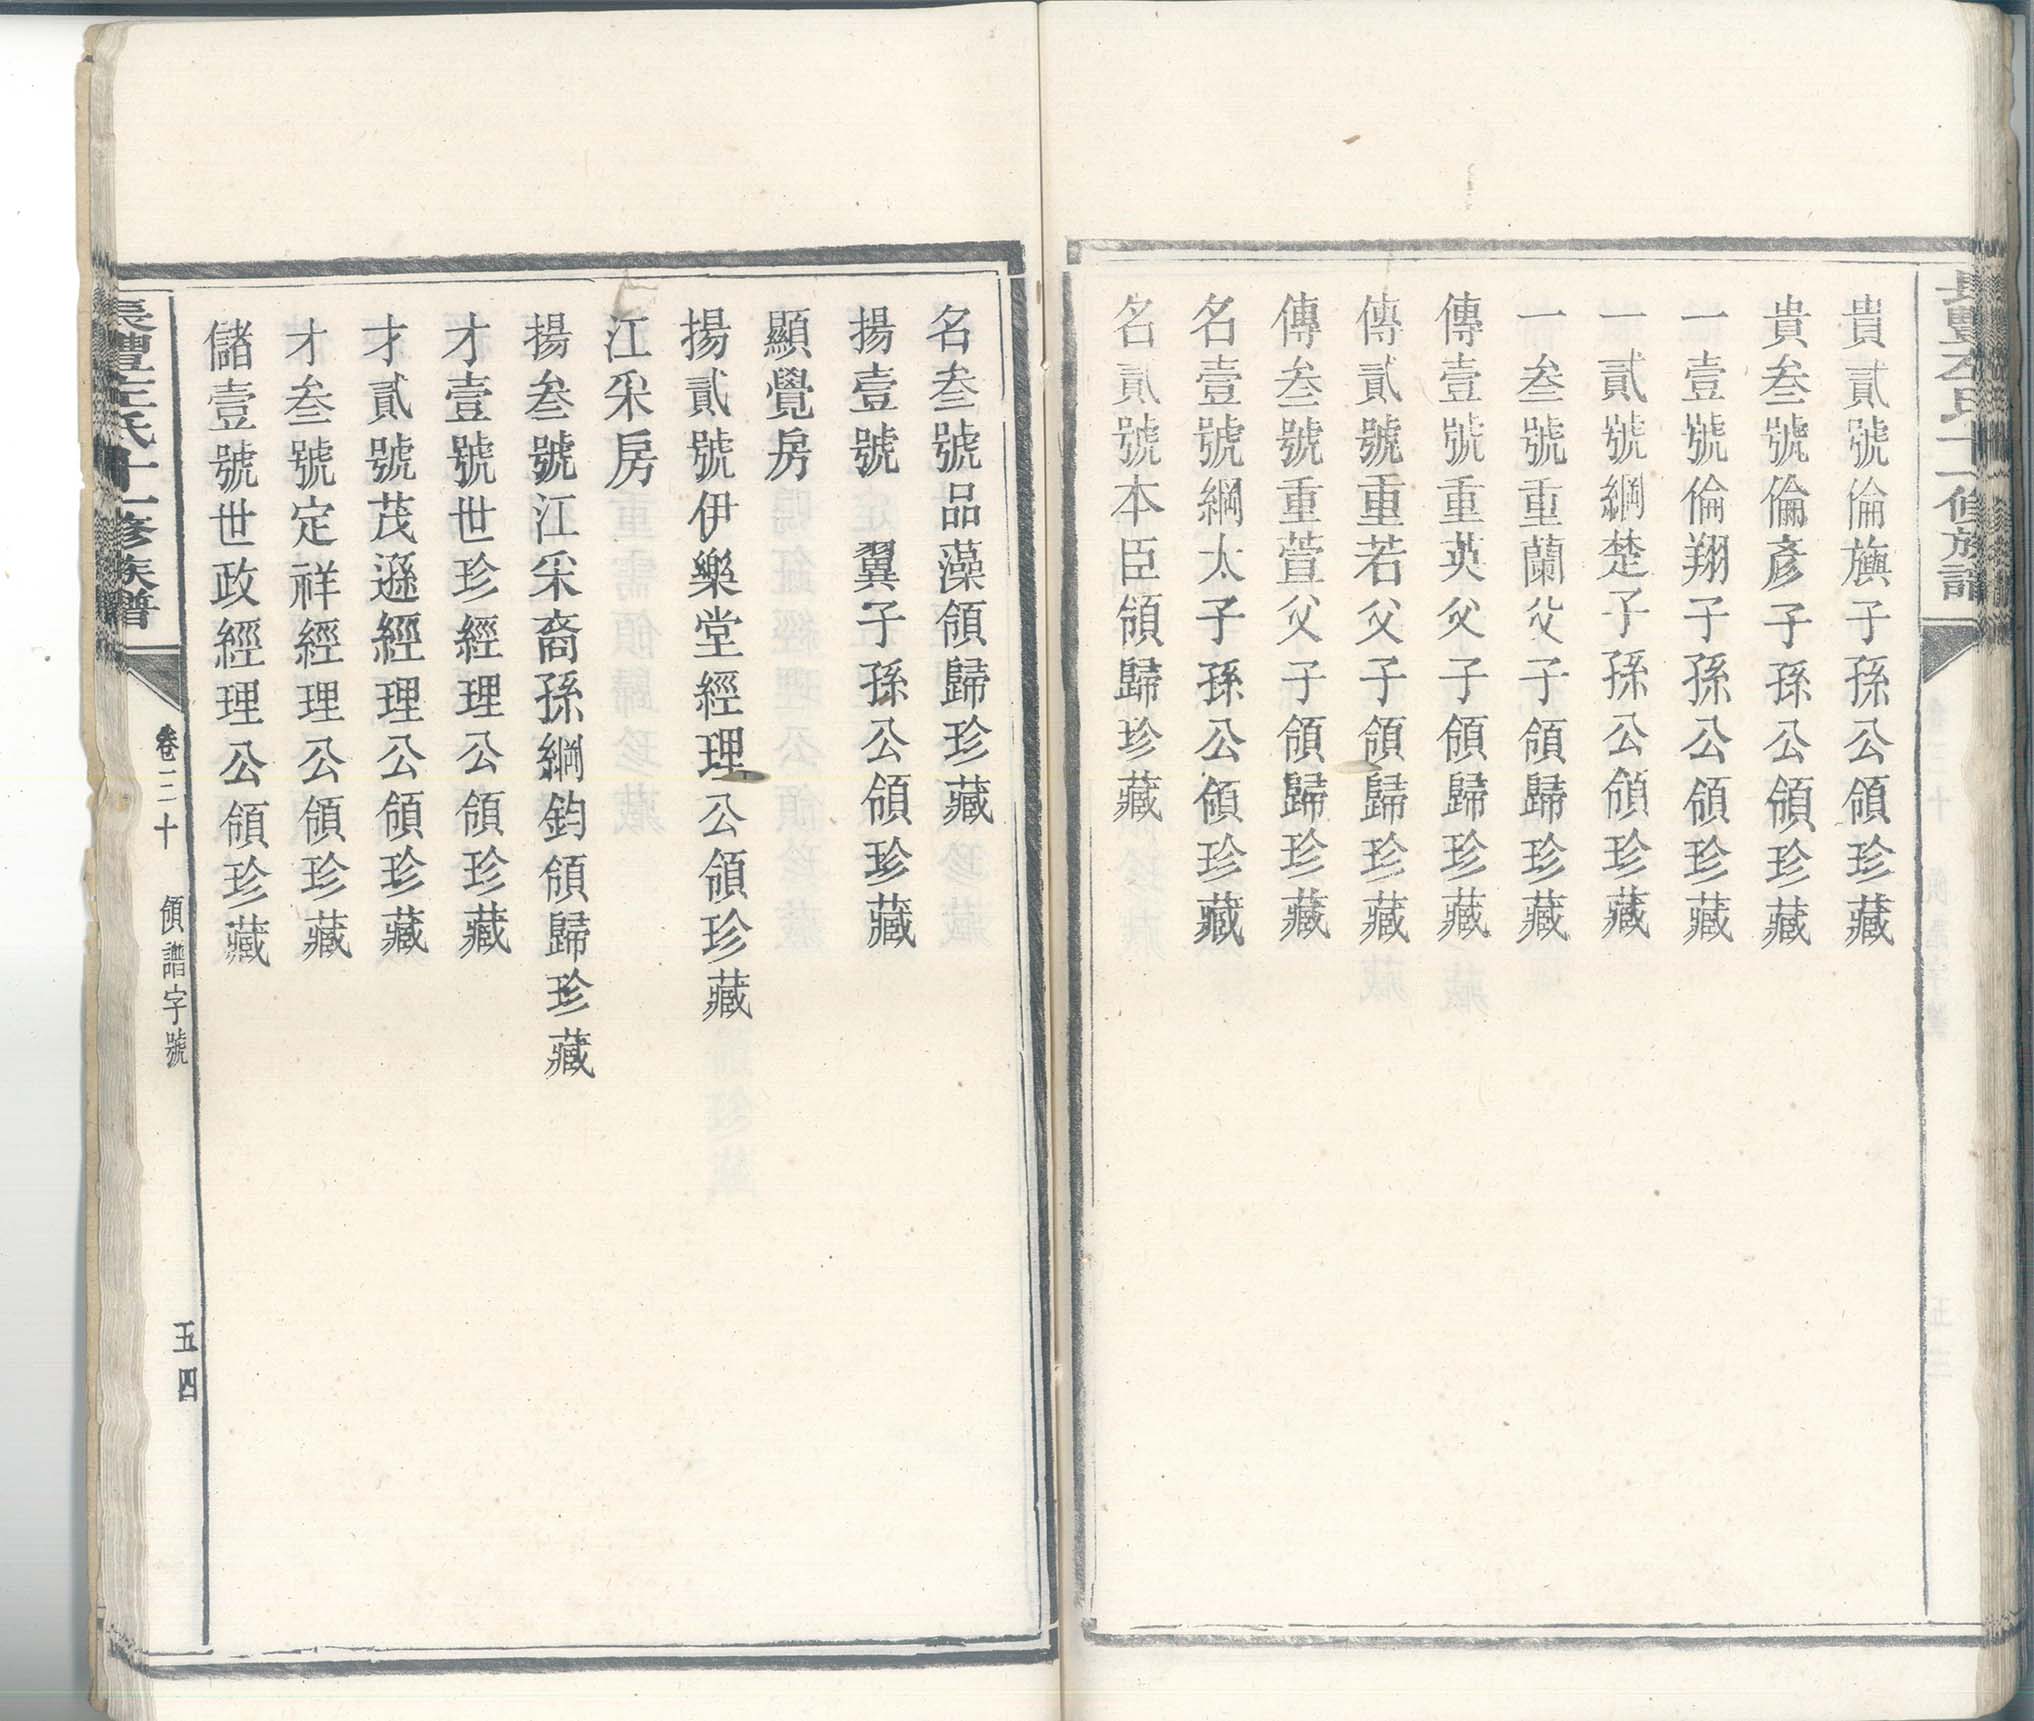 貴貳號倫旟子孫公領珍藏
貴叁號倫彥子孫公領珍藏
一壹號倫翔子孫公領珍藏
一貳號綱楚子孫公領珍藏
一叁號重蘭父子領歸珍藏
傳壹號重英父子領歸珍藏
傳貳號重若父子領歸珍藏
傳叁號重萱父子領歸珍藏
名壹號綱太子孫公領珍藏
名貳號本臣領歸珍藏
名叁號品藻領歸珍藏
揚壹號 翼子孫公領珍藏
顯覺房
揚貳號伊樂堂經理公領珍藏
江采房
揚叁號江采裔孫綱鈞領歸珍藏
才壹號世珍經理公領珍藏
才貳號茂遜經理公領珍藏
才叁號定祥經理公領珍藏
儲壹號世政經理公領珍藏
左氏十一修族譜
卷二十 領譜字號 五四